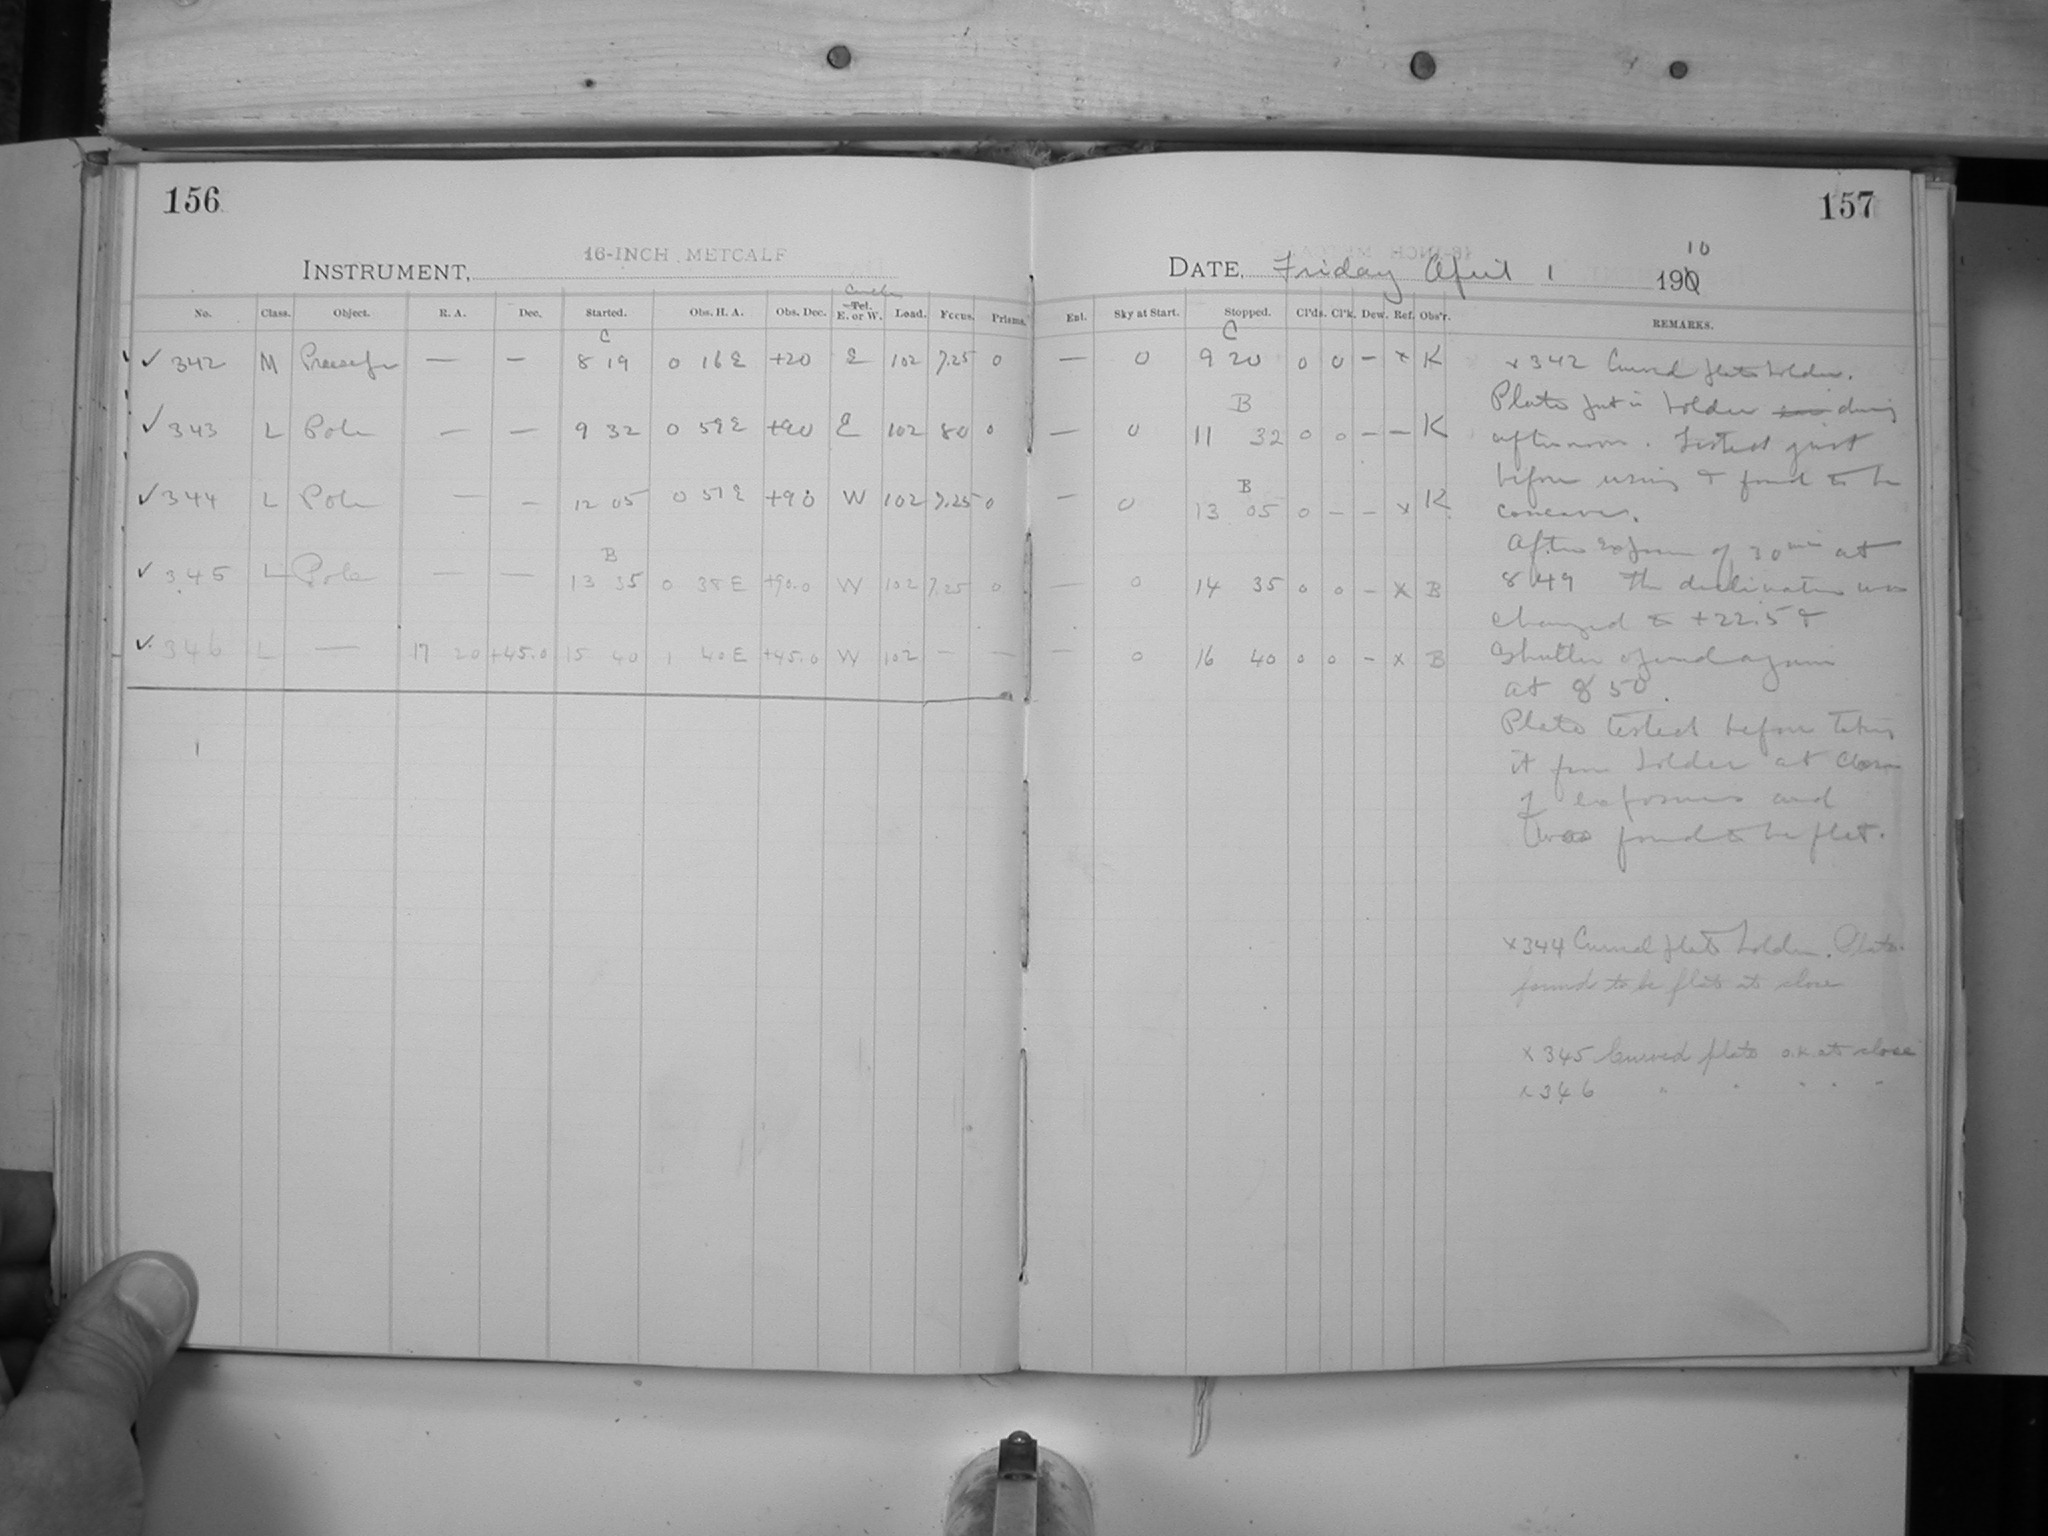 156
157
INSTRUMENT, 16-INCH METCALF
DATE, Friday April 1 1910
No. Class. Object. R. A. Dec. Started. Obs. H. A. Obs. Dec. Circle Tel. E. or W. Load. Focus. Prisms. Ext. Sky at Start. Stopped. Cl'ds. Cl'k. Dew. Ref. Obs'r. REMARKS.
C C
✓ 342 M Praesepe — — 8 19 0 16 E +20 E 102 7.25 0 — 0 9 20 0 0 — x K
B
✓ 343 L Pole — — 9 32 0 59 E +90 E 102 80 0 — 0 11 32 0 0 — — K
B
✓ 344 L Pole — — 12 05 0 51 E +90 W 102 7.25 0 — 0 13 05 0 — — x K
B
✓ 345 L Pole — — 13 35 0 38 E +90.0 W 102 7.25 0 — 0 14 35 0 0 — x B
✓ 346 L — 17 20 +45.0 15 40 1 40 E +45.0 W 102 — — — 0 16 40 0 0 — x B
x 342 Curved plate holder.
Plate put in holder during
afternoon. Tested just
before using & found to be
concave.
After exposure of 30 min at
8 49 the declination was
changed to +22.5 &
Shutter opened again
at 8 50.
Plate tested before taking
it from holder at close
of exposure and
was found to be flat.
x 344 Curved plate holder. Plate
found to be flat at close
x 345 Curved plate o.k. at close
x 346 " " " " "